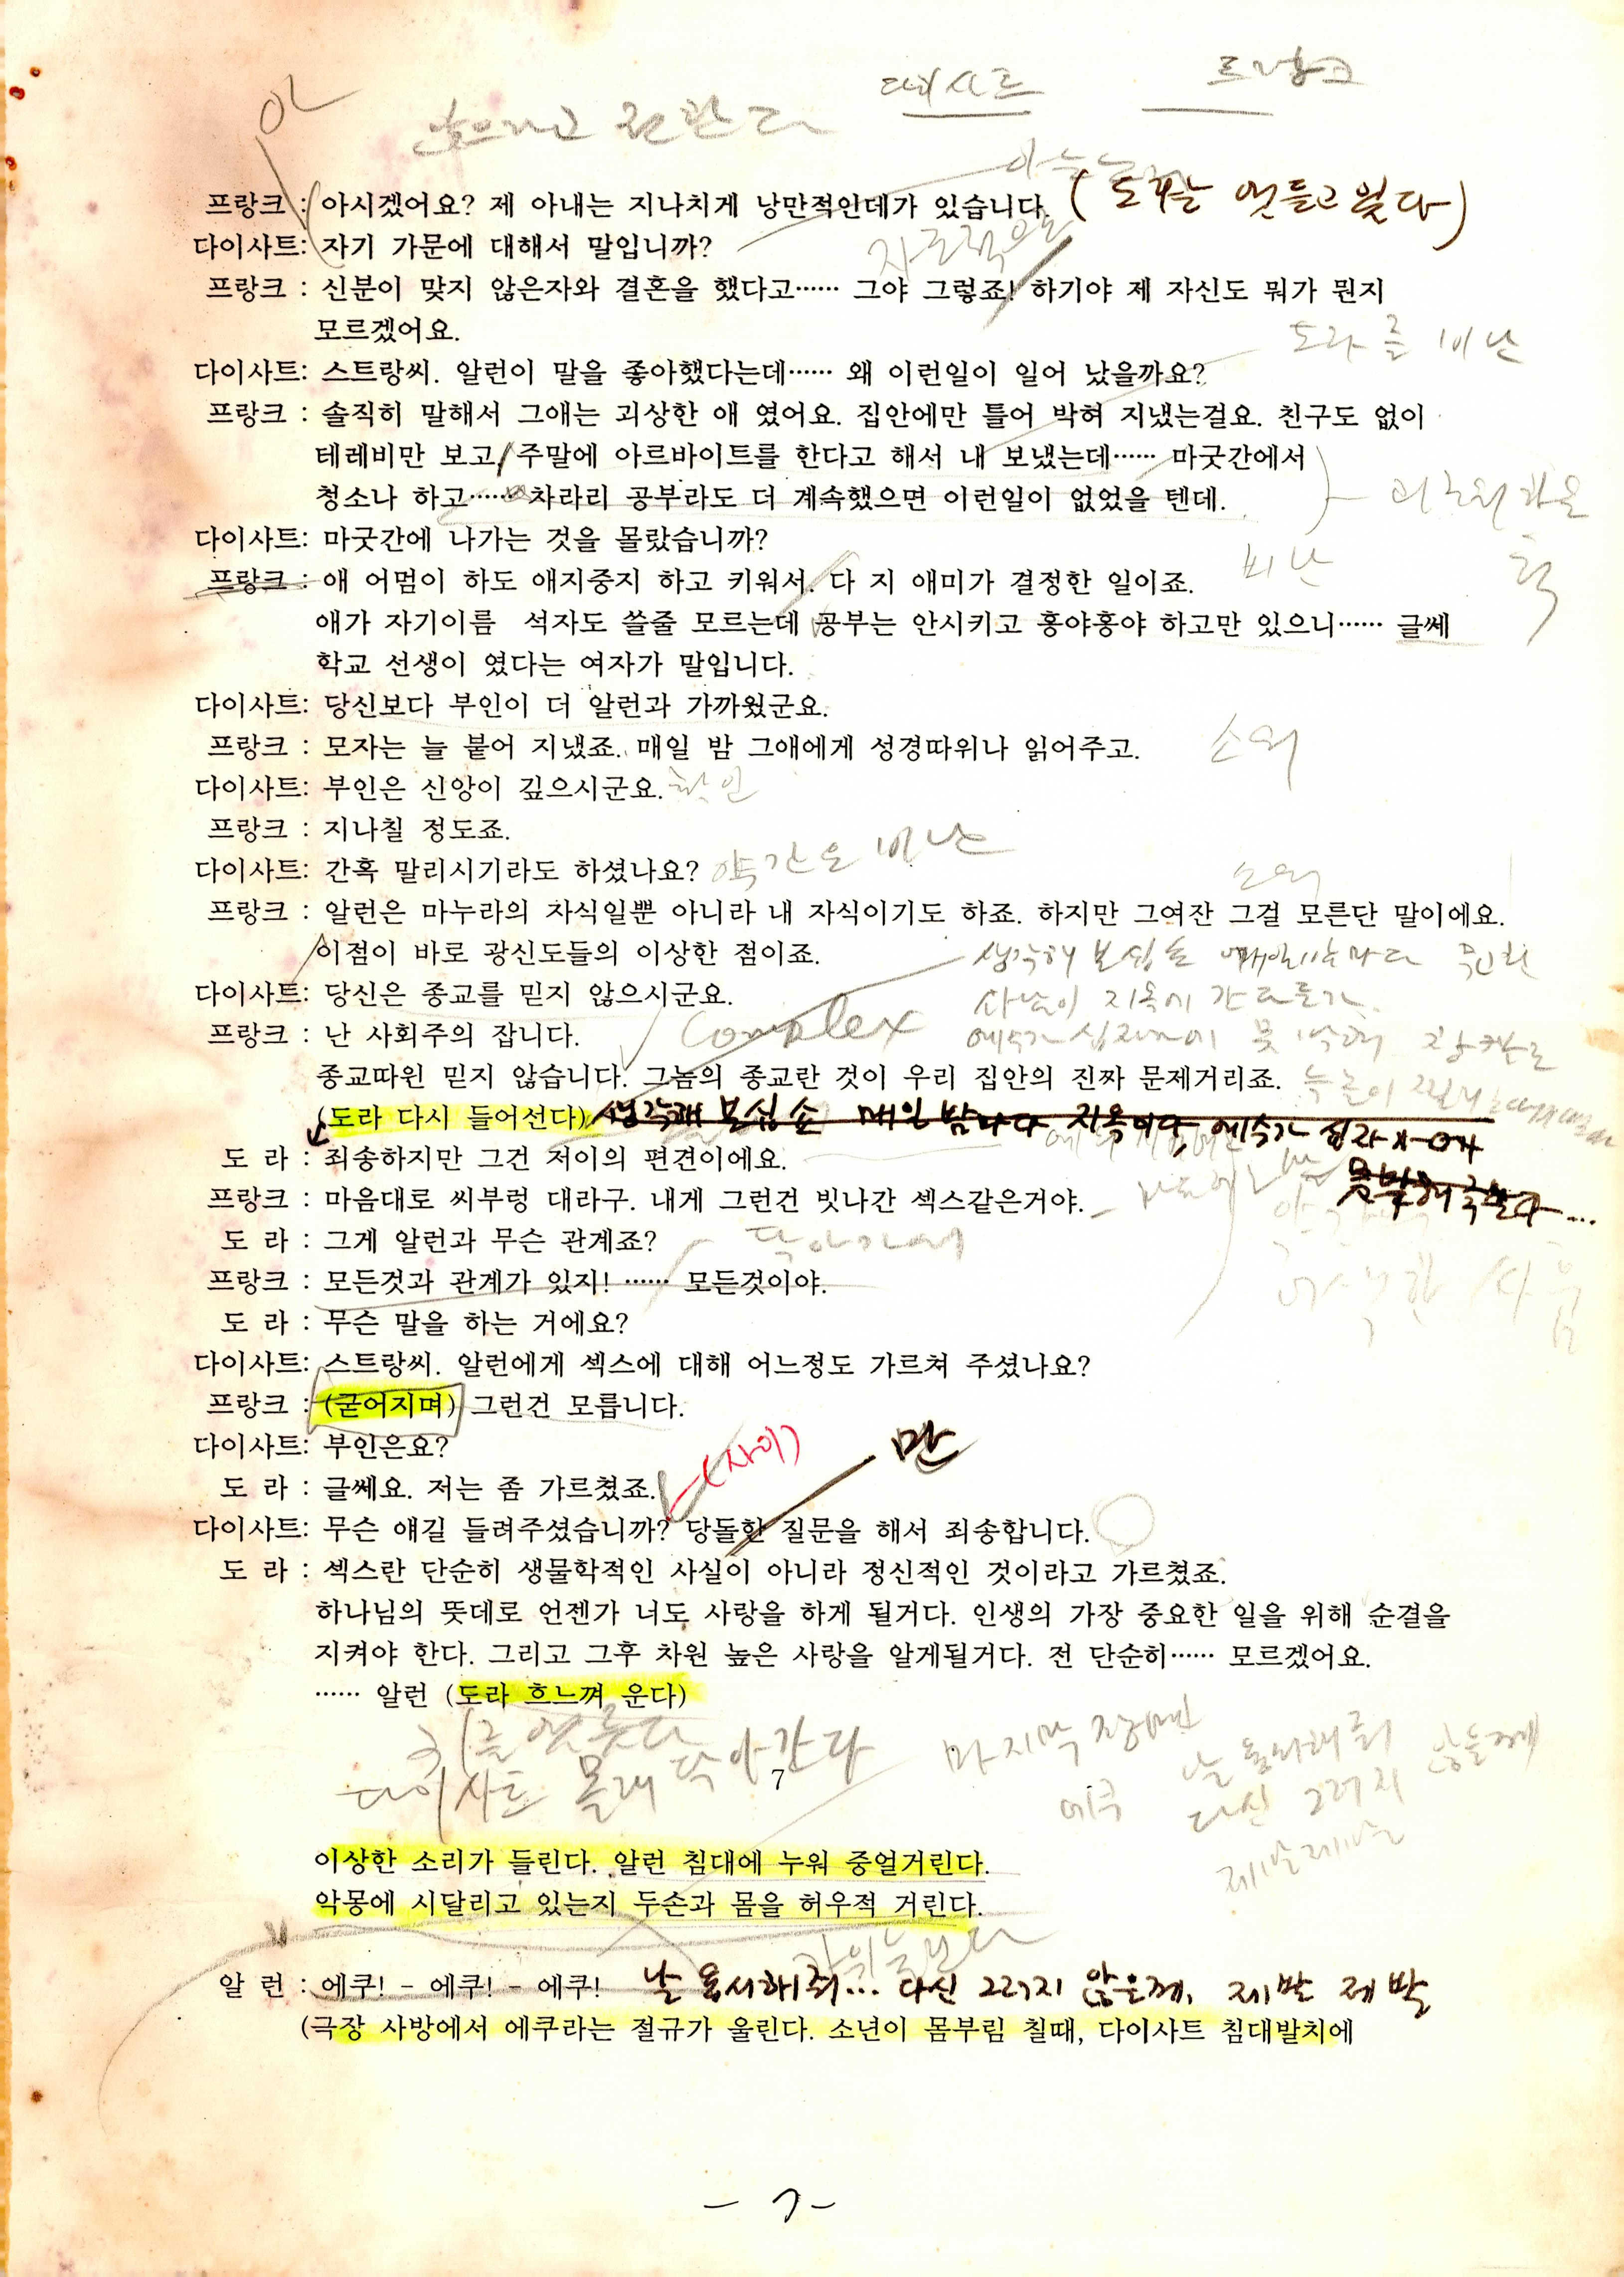 아
앉으라고 권한다
다이사트 프랑크
프랑크 : 아시겠어요? 제 아내는 지나치게 낭만적인데가 있습니다. (도라는 엿듣고 있다)
다이사트: 자기 가문에 대해서 말입니까?
프랑크 : 신분이 맞지 않은자와 결혼을 했다고…… 그야 그렇죠! 하기야 제 자신도 뭐가 뭔지
모르겠어요.
도라를 비난
다이사트: 스트랑씨. 알런이 말을 좋아했다는데…… 왜 이런일이 일어 났을까요?
프랑크 : 솔직히 말해서 그애는 괴상한 애 였어요. 집안에만 틀어 박혀 지냈는걸요. 친구도 없이
테레비만 보고, 주말에 아르바이트를 한다고 해서 내 보냈는데…… 마굿간에서
청소나 하고…… 차라리 공부라도 더 계속했으면 이런일이 없었을 텐데.
다이사트: 마굿간에 나가는 것을 몰랐습니까?
비난
프랑크 : 애 어멈이 하도 애지중지 하고 키워서. 다 지 애미가 결정한 일이죠.
애가 자기이름 석자도 쓸줄 모르는데 공부는 안시키고 흥야흥야 하고만 있으니…… 글쎄
학교 선생이 였다는 여자가 말입니다.
다이사트: 당신보다 부인이 더 알런과 가까웠군요.
프랑크 : 모자는 늘 붙어 지냈죠. 매일 밤 그애에게 성경따위나 읽어주고.
소외
다이사트: 부인은 신앙이 깊으시군요. 확인
프랑크 : 지나칠 정도죠.
다이사트: 간혹 말리시기라도 하셨나요? 약간은 비난
소외
프랑크 : 알런은 마누라의 자식일뿐 아니라 내 자식이기도 하죠. 하지만 그여잔 그걸 모른단 말이에요.
이점이 바로 광신도들의 이상한 점이죠.
생각해 보십쇼 매일밤마다
다이사트: 당신은 종교를 믿지 않으시군요.
프랑크 : 난 사회주의 잡니다.
complex
종교따윈 믿지 않습니다. 그놈의 종교란 것이 우리 집안의 진짜 문제거리죠.
(도라 다시 들어선다) 생각해 보십쇼 매일 밤마다 지옥이다, 예수가 십자가에
못박혀 죽는다…
도 라 : 죄송하지만 그건 저이의 편견이에요.
프랑크 : 마음대로 씨부렁 대라구. 내게 그런건 빗나간 섹스같은거야.
도 라 : 그게 알런과 무슨 관계죠? 닥아가며
프랑크 : 모든것과 관계가 있지! …… 모든것이야.
도 라 : 무슨 말을 하는 거에요?
다이사트: 스트랑씨. 알런에게 섹스에 대해 어느정도 가르쳐 주셨나요?
프랑크 : (굳어지며) 그런건 모릅니다.
다이사트: 부인은요?
(사이)
만
도 라 : 글쎄요. 저는 좀 가르쳤죠.
다이사트: 무슨 얘길 들려주셨습니까? 당돌한 질문을 해서 죄송합니다.
도 라 : 섹스란 단순히 생물학적인 사실이 아니라 정신적인 것이라고 가르쳤죠.
하나님의 뜻데로 언젠가 너도 사랑을 하게 될거다. 인생의 가장 중요한 일을 위해 순결을
지켜야 한다. 그리고 그후 차원 높은 사랑을 알게될거다. 전 단순히…… 모르겠어요.
…… 알런 (도라 흐느껴 운다)
다이사트 몰래 닥아간다
마지막 장면
에쿠 날 용서해줘
다신 그러지 않을께
제발제발
7
이상한 소리가 들린다. 알런 침대에 누워 중얼거린다.
악몽에 시달리고 있는지 두손과 몸을 허우적 거린다.
가위눌린다
알 런 : 에쿠! - 에쿠! - 에쿠! 날 용서해줘… 다신 그러지 않을께, 제발 제발
(극장 사방에서 에쿠라는 절규가 울린다. 소년이 몸부림 칠때, 다이사트 침대발치에
- 7 -